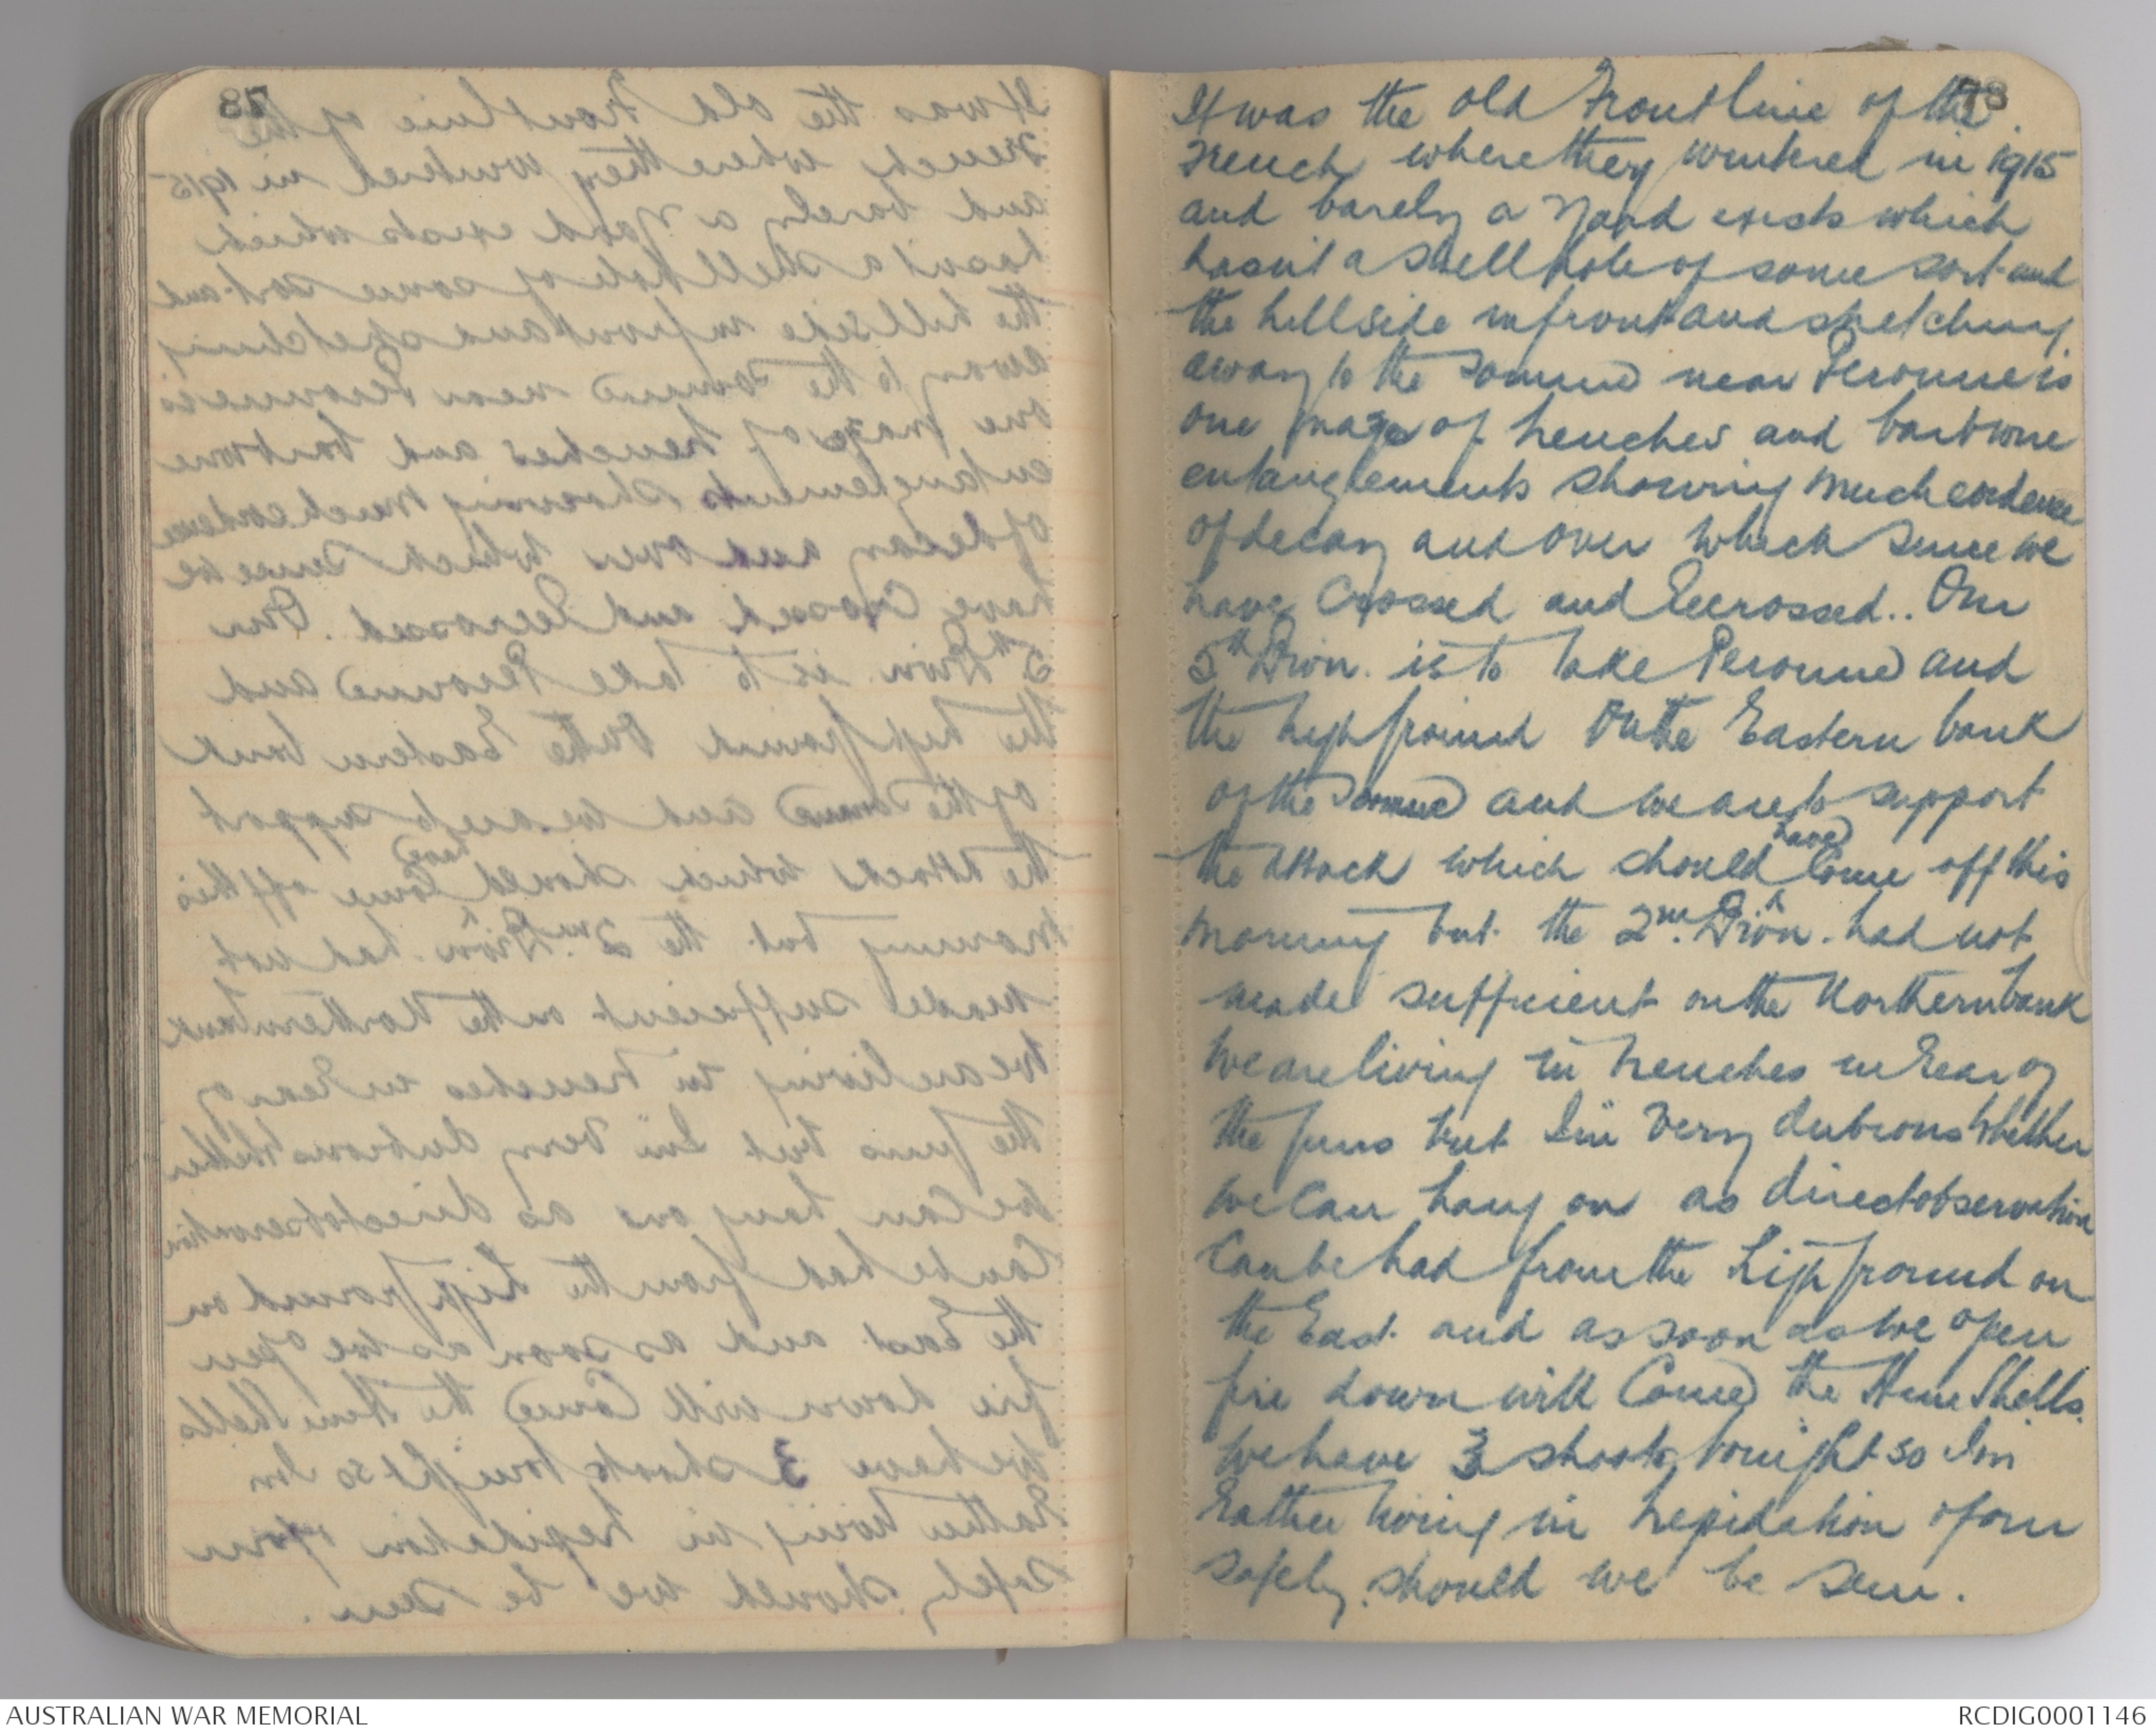 78
It was the old Front line of the
French where they wintered in 1915
and barely a yard exists which
hasn't a shell hole of some sort and
the hillside in front and stretching
away to the Somme near Peronne is
one maze of trenches and barb wire
entanglements showing much evidence
of decay and over which since we
have crossed and Recrossed.. Our
5th Divn. is to take Peronne and
the high ground on the Eastern bank
of the Somme and we are to support
the attack which should have come off this
morning but the 2nd. Divn. had not
made sufficient on the Northern bank
We are living in trenches in rear of
the guns but I'm very dubious whether
we can hang on as direct observation
can be had from the high ground on
the East and as soon as we open
fire down will come the Hun Shells.
We have 3 shoots tonight so I'm
rather living in trepidation of our
safety should we be seen.
AUSTRALIAN WAR MEMORIAL
RCDIG0001146